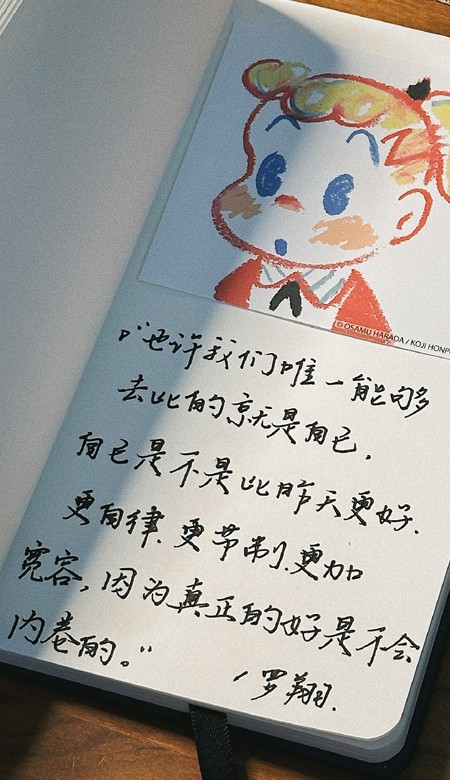 © OSAMU HARADA / KOJI HONPO
“也许我们唯一能够
去比的就是自己,
自己是不是比昨天更好.
更自律.更节制.更加
宽容,因为真正的好是不会
内卷的。”
罗翔.